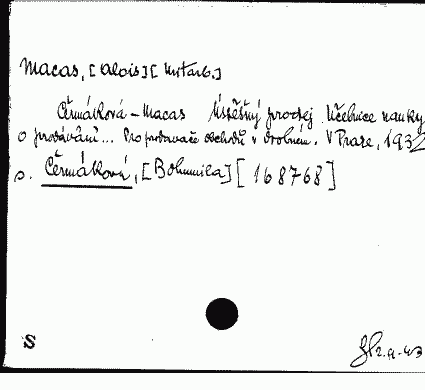 Macas, [Alois] [Mitarb.]
Čermáková - Macas Úspěšný prodej. Učebnice nauky
o prodávání... Pro prodavače obchodů v drobném. V Praze, 1932
s. Čermáková, [Bohumila] [168768]
S